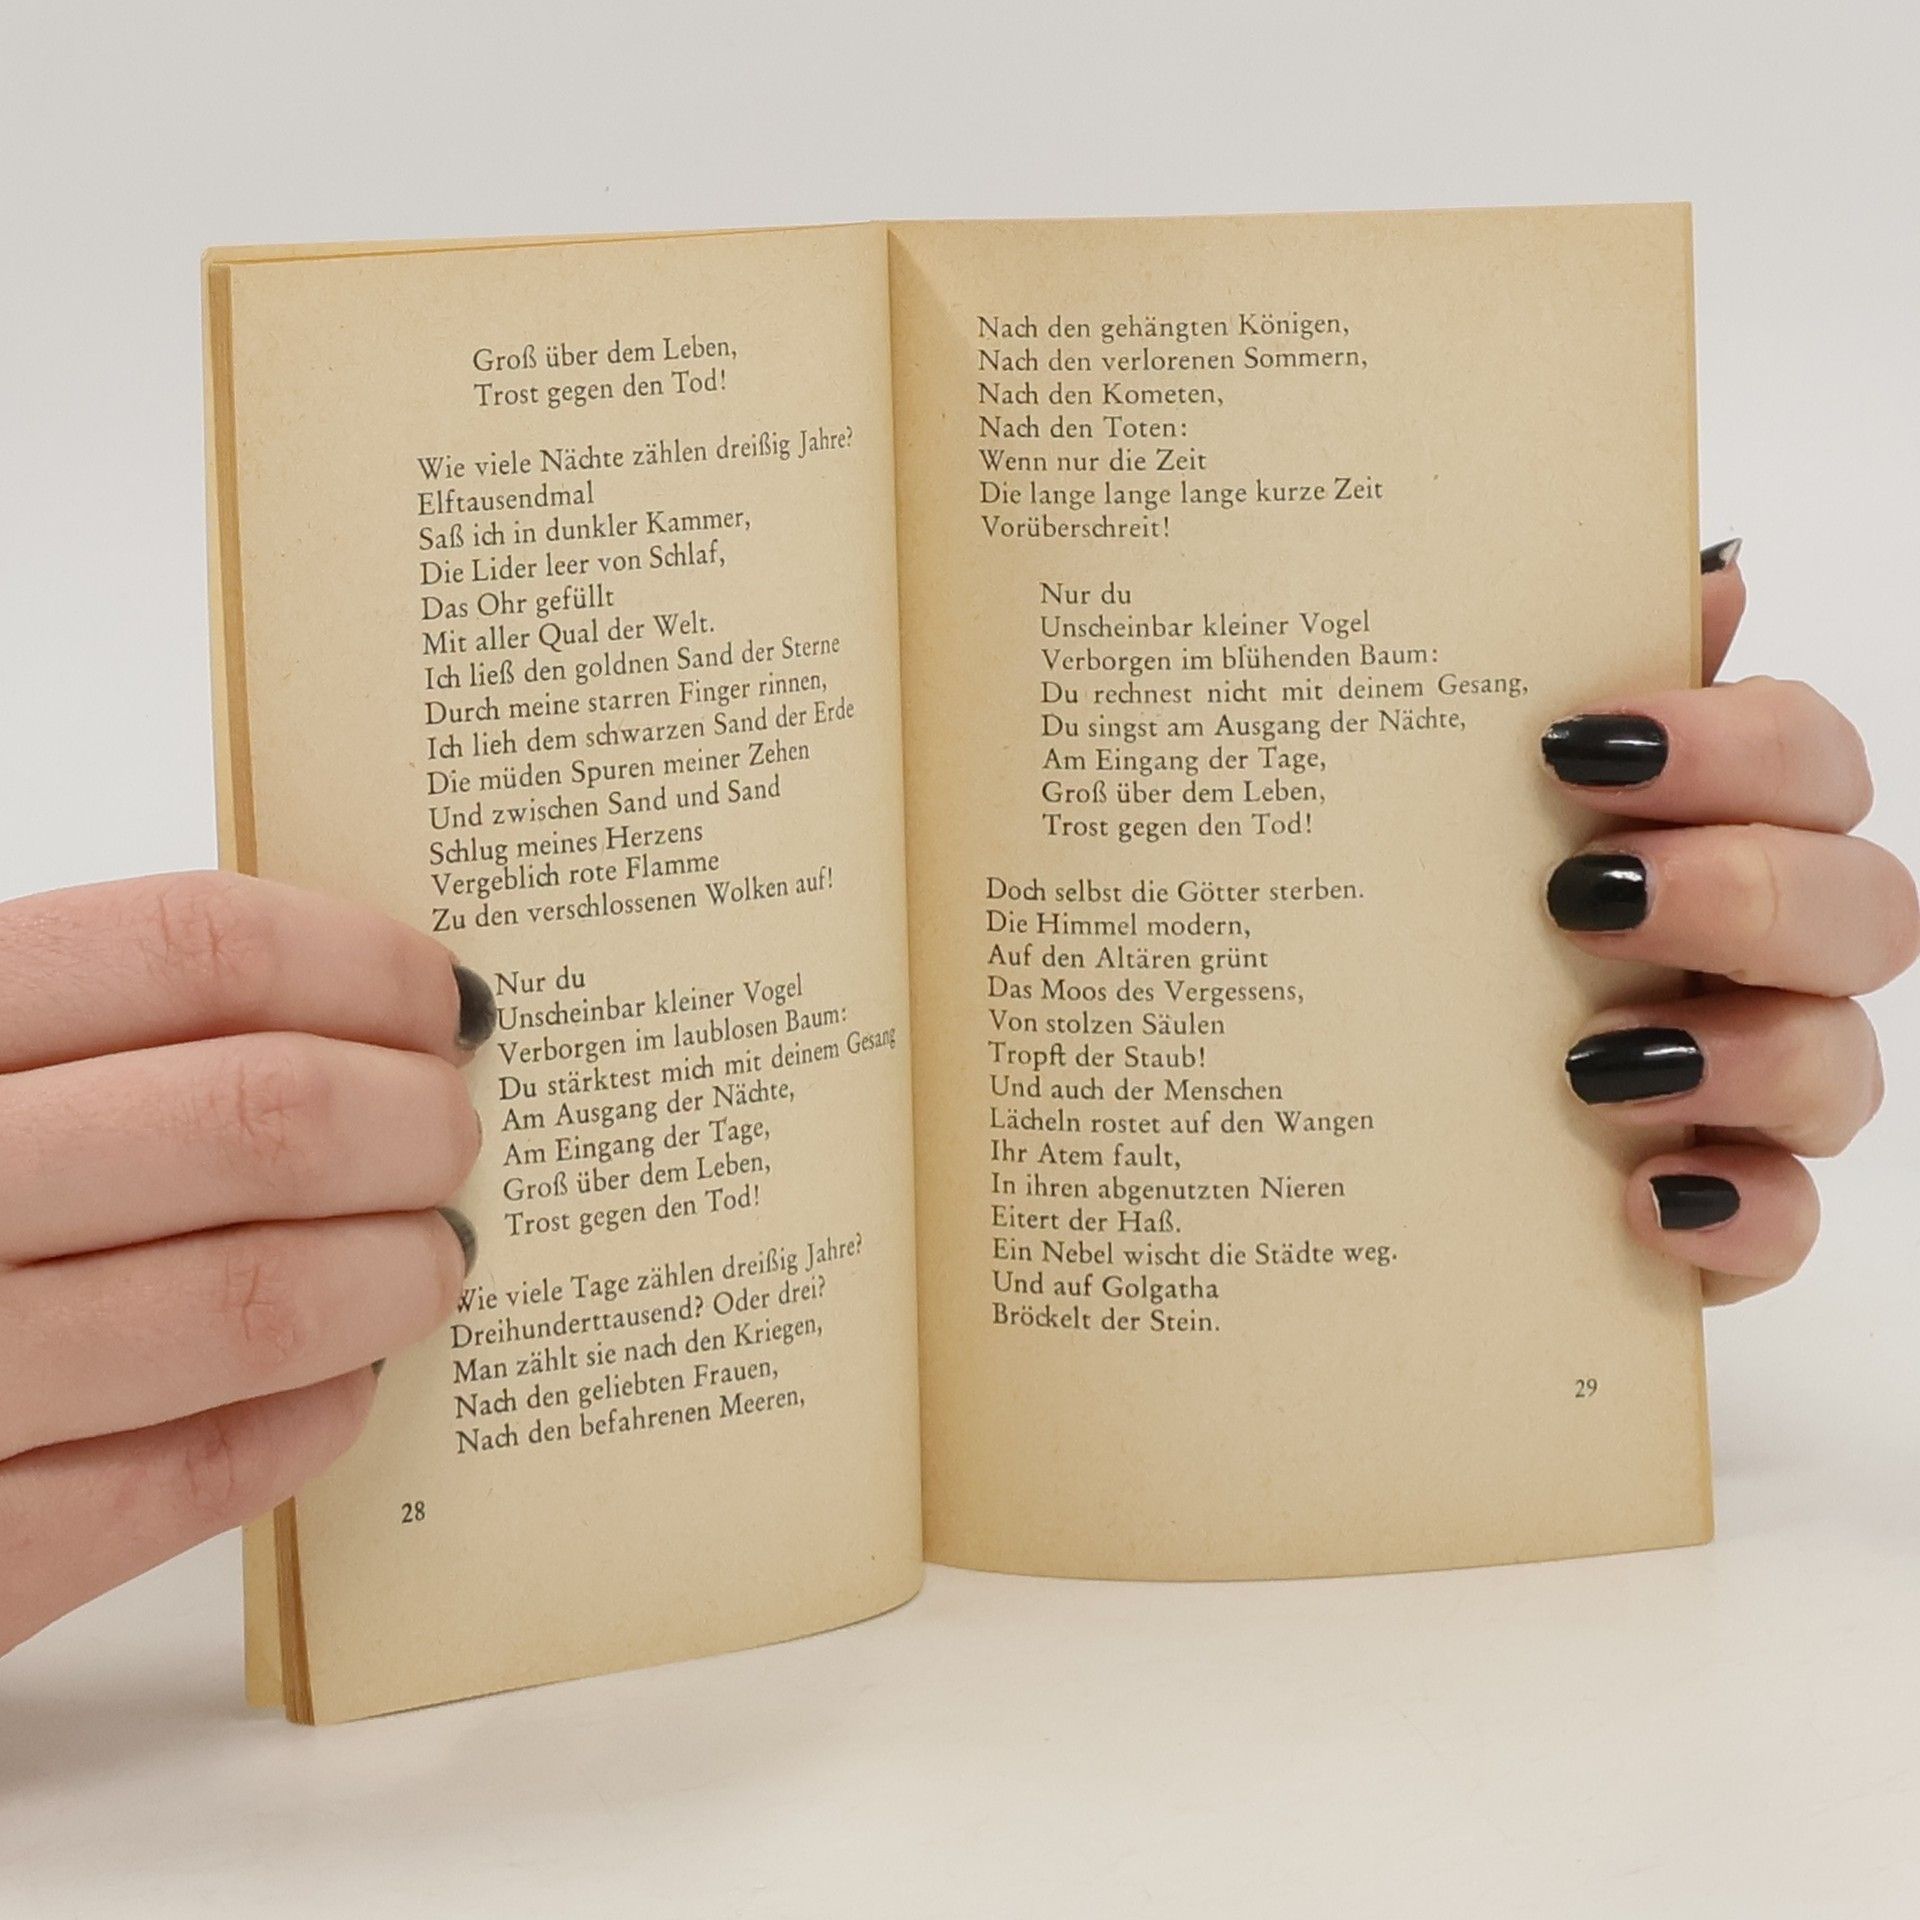 Groß über dem Leben,
Trost gegen den Tod!
Wie viele Nächte zählen dreißig Jahre?
Elftausendmal
Saß ich in dunkler Kammer,
Die Lider leer von Schlaf,
Das Ohr gefüllt
Mit aller Qual der Welt.
Ich ließ den goldnen Sand der Sterne
Durch meine starren Finger rinnen,
Ich lieh dem schwarzen Sand der Erde
Die müden Spuren meiner Zehen
Und zwischen Sand und Sand
Schlug meines Herzens
Vergeblich rote Flamme
Zu den verschlossenen Wolken auf!
Nur du
Unscheinbar kleiner Vogel
Verborgen im laublosen Baum:
Du stärktest mich mit deinem Gesang
Am Ausgang der Nächte,
Am Eingang der Tage,
Groß über dem Leben,
Trost gegen den Tod!
Wie viele Tage zählen dreißig Jahre?
Dreihunderttausend? Oder drei?
Man zählt sie nach den Kriegen,
Nach den geliebten Frauen,
Nach den befahrenen Meeren,
28
Nach den gehängten Königen,
Nach den verlorenen Sommern,
Nach den Kometen,
Nach den Toten:
Wenn nur die Zeit
Die lange lange lange kurze Zeit
Vorüberschreit!
Nur du
Unscheinbar kleiner Vogel
Verborgen im blühenden Baum:
Du rechnest nicht mit deinem Gesang,
Du singst am Ausgang der Nächte,
Am Eingang der Tage,
Groß über dem Leben,
Trost gegen den Tod!
Doch selbst die Götter sterben.
Die Himmel modern,
Auf den Altären grünt
Das Moos des Vergessens,
Von stolzen Säulen
Tropft der Staub!
Und auch der Menschen
Lächeln rostet auf den Wangen
Ihr Atem fault,
In ihren abgenutzten Nieren
Eitert der Haß.
Ein Nebel wischt die Städte weg.
Und auf Golgatha
Bröckelt der Stein.
29